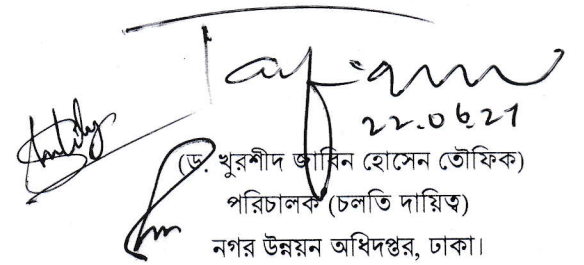 22.06.21
(ড. খুরশীদ জাবিন হোসেন তৌফিক)
পরিচালক (চলতি দায়িত্ব)
নগর উন্নয়ন অধিদপ্তর, ঢাকা।